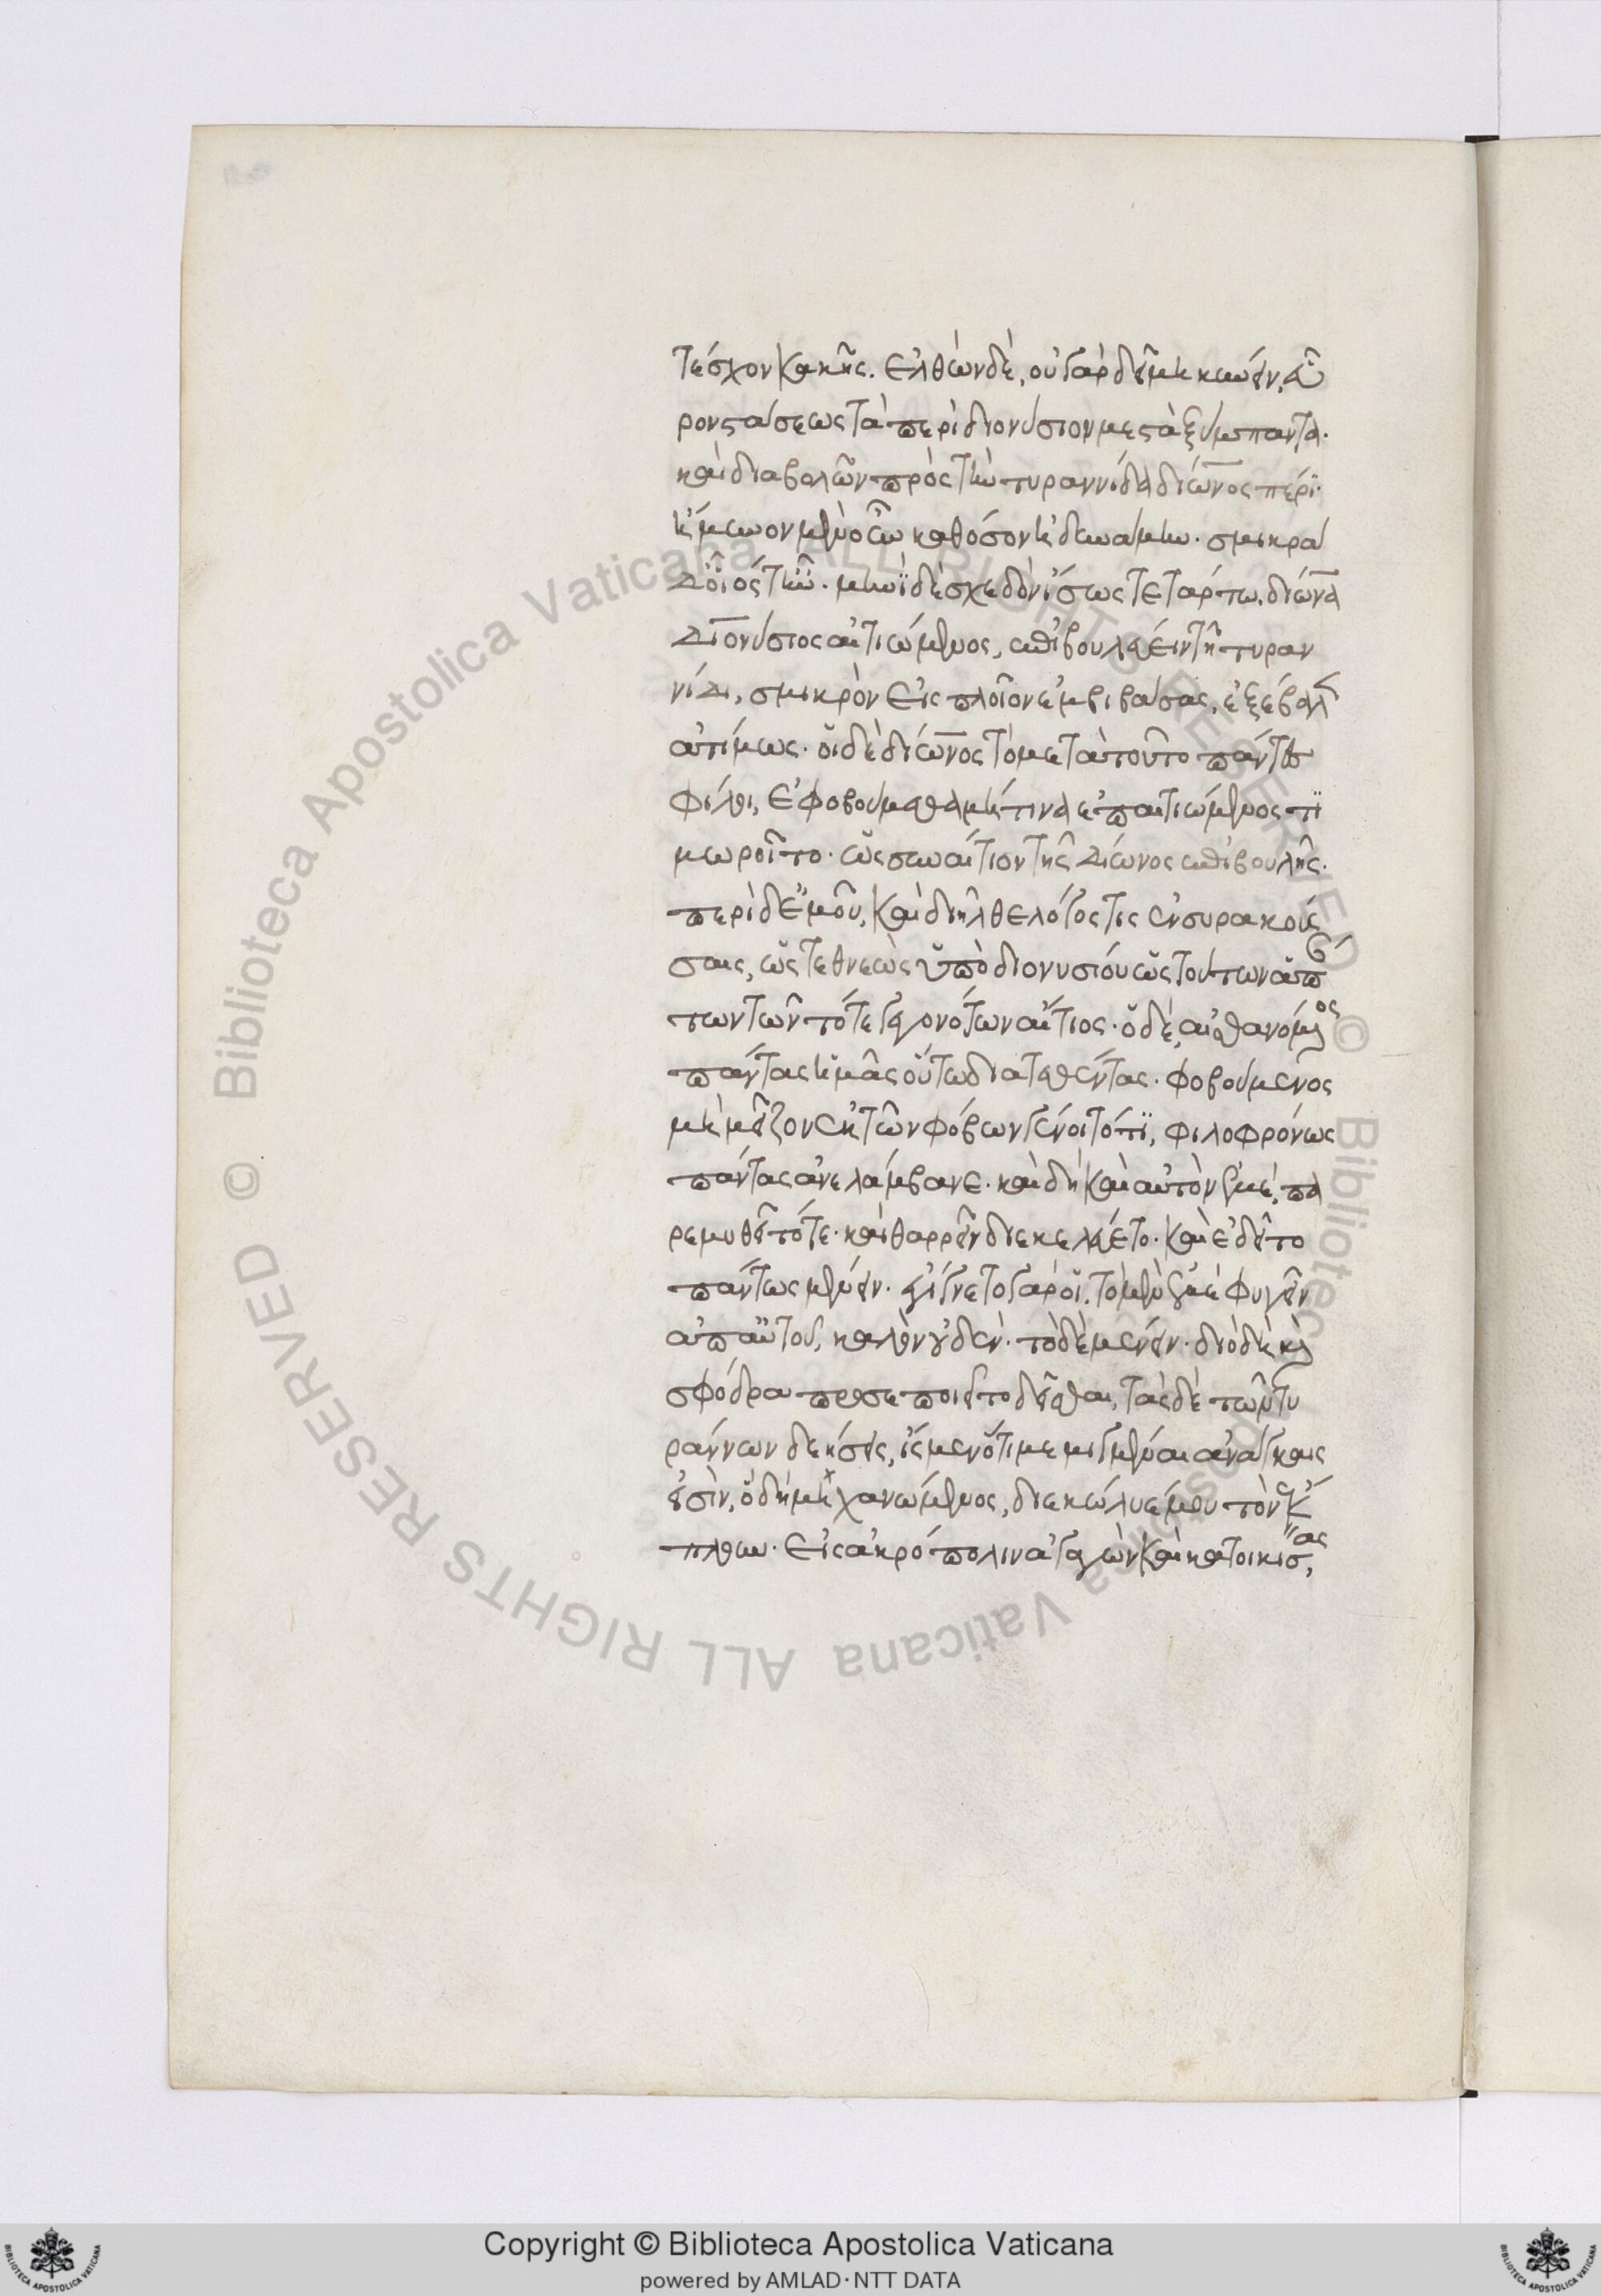 τέσχον κάκης. ἐλθὼν δὲ, οὐ γὰρ δεῖ μηκύνειν, εὗ
ρον στάσεως τὰ περὶ διονύσιον μεστὰ ξύμπαντα.
καὶ διαβολῶν πρὸς τὴν τυραννίδα δίωνος πέρι.
ἤμυνον μὲν οὖν καθόσον ἠδυνάμην. σμικρὰ
δ' οἷός τ' ἦν. μηνὶ δὲ σχεδὸν ἴσως τετάρτω, δίωνα
διονύσιος αἰτιώμενος, ἐπιβουλεύειν τῆ τυραν
νίδι, σμικρὸν εἰς πλοῖον ἐμβιβάσας, ἐξέβαλεν
ἀτίμως. οἱ δὲ δίωνος τὸ μετὰ τοῦτο πάντες
φίλοι, ἐφοβούμεθα μή τινα ἐπαιτιώμενος τι
μωροῖτο. ὡς συναίτιον τῆς δίωνος ἐπιβουλῆς.
περὶ δ' ἐμοῦ, καὶ διῆλθε λόγος τις ἐν συρακού
σαις, ὡς τεθνεὼς ὑπὸ διονυσίου ὡς τούτων ἁπάν
των τῶν τότε γεγονότων αἴτιος. ὁ δὲ, αἰσθανόμενος
πάντας ἡμᾶς οὕτω διατεθέντας. φοβούμενος
μὴ μεῖζον ἐκ τῶν φόβων γένοιτό τι, φιλοφρόνως
πάντας ἀνελάμβανε. καὶ δὴ καὶ αὐτὸν ἐμὲ, πα
ρεμυθεῖτό τε. καὶ θαρρεῖν διεκελεύετο. καὶ ἐδεῖτο
πάντως μένειν. ἐγίγνετο γάρ οἱ. τὸ μὲν ἐμὲ φυγεῖν
ἀπ' αὐτοῦ, καλὸν οὐδέν. τὸ δὲ μένειν. διὸ δὴ καὶ
σφόδρα προσεποιεῖτο δεῖσθαι, τὰς δὲ τῶν τυ
ράννων δεήσεις, ἴσμεν ὅτι μεμιγμέναι ἀνάγκαις
εἰσὶν, ὁ δὴ μηχανώμενος, διεκώλυέ μου τὸν ἔκ
πλουν. εἰς ἀκρόπολιν ἀγαγὼν καὶ κατοικίσας,